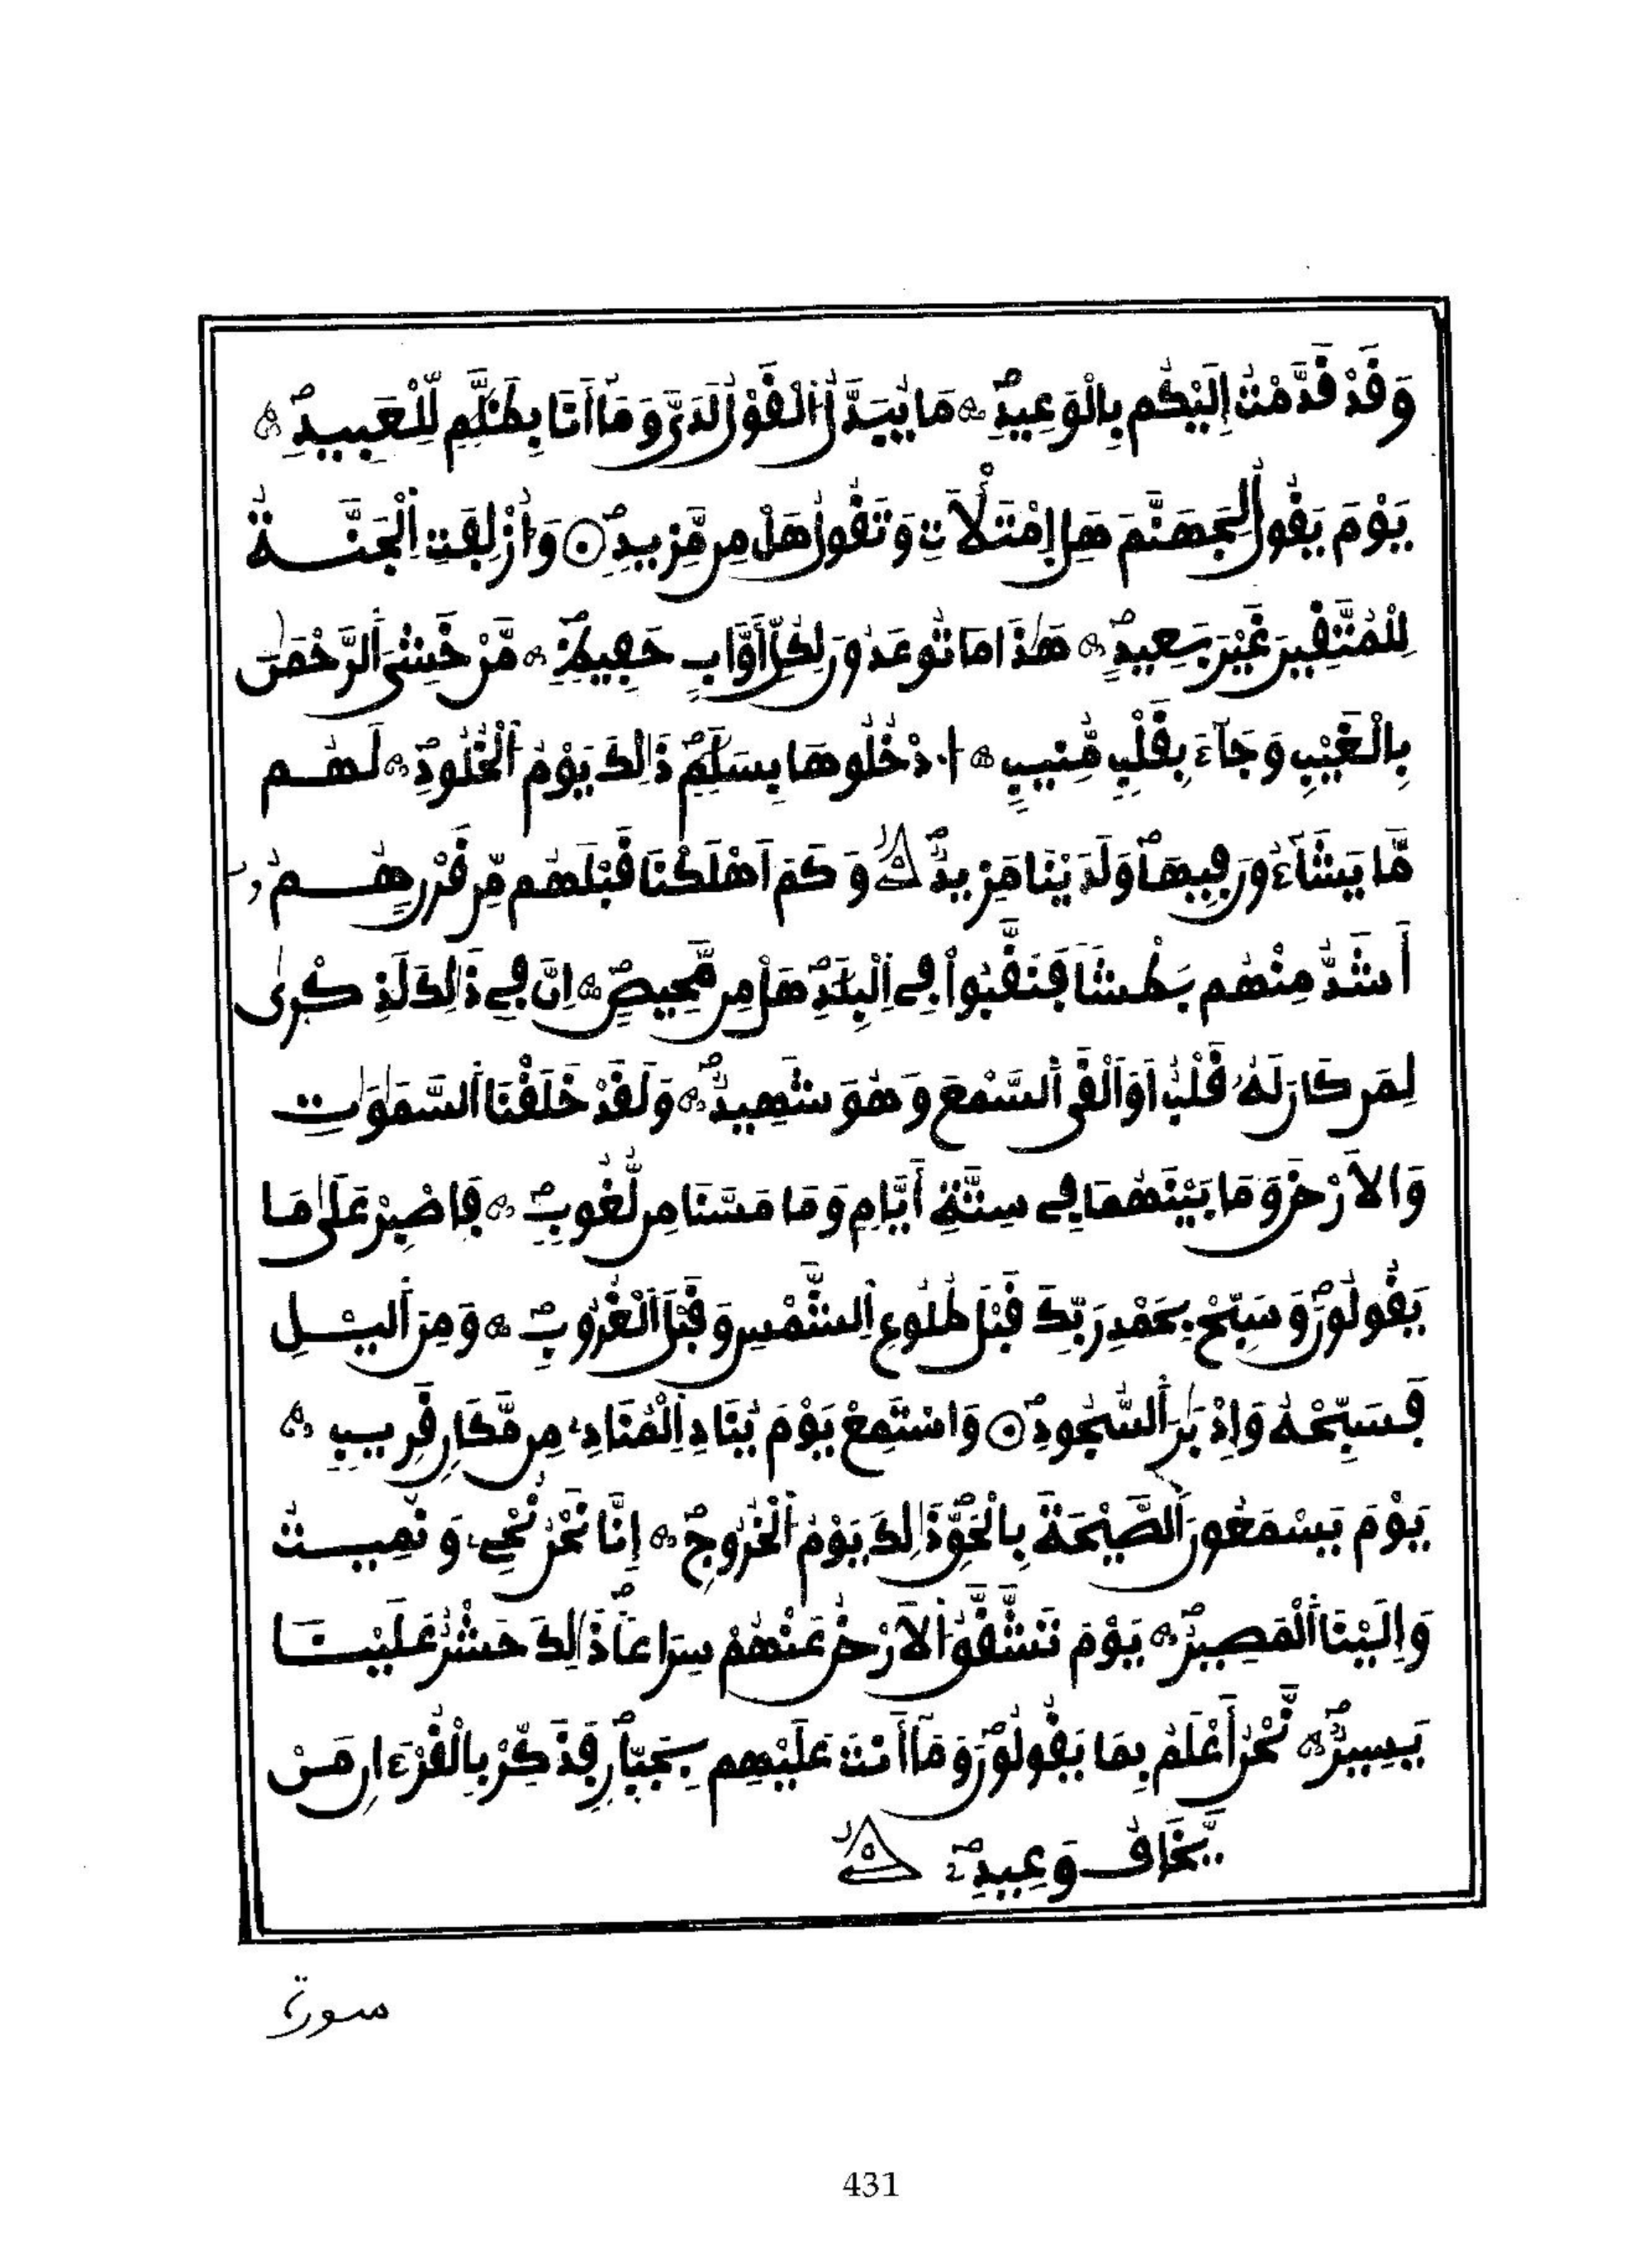 وَقَدْ قَدَّمْتُ إِلَيْكُم بِالْوَعِيدِ مَا يُبَدَّلُ اُلْقَوْلُ لَدَيَّ وَمَا أَنَا بِظَلَّٰمٍ لِّلْعَبِيدِ
يَوْمَ يَقُولُ لِجَهَنَّمَ هَلِ اِمْتَلَأْتِ وَتَقُولُ هَلْ مِن مَّزِيدٍ وَأُزْلِفَتِ اِلْجَنَّةُ
لِلْمُتَّقِينَ غَيْرَ بَعِيدٍ هَٰذَا مَا تُوعَدُونَ لِكُلِّ أَوَّابٍ حَفِيظٍ مَّنْ خَشِيَ اَلرَّحْمَٰنَ
بِالْغَيْبِ وَجَآءَ بِقَلْبٍ مُّنِيبٍ اُدْخُلُوهَا بِسَلَٰمٍ ذَٰلِكَ يَوْمُ اُلْخُلُودِ لَهُم
مَّا يَشَآءُونَ فِيهَا وَلَدَيْنَا مَزِيدٌ وَكَمَ اَهْلَكْنَا قَبْلَهُم مِّن قَرْنٍ هُمُ
أَشَدُّ مِنْهُم بَطْشاً فَنَقَّبُواْ فِي اِلْبِلَٰدِ هَلْ مِن مَّحِيصٍ اِنَّ فِي ذَٰلِكَ لَذِكْرَىٰ
لِمَن كَانَ لَهُۥ قَلْبٌ اَوَ اَلْقَى اَلسَّمْعَ وَهُوَ شَهِيدٌ وَلَقَدْ خَلَقْنَا اَلسَّمَٰوَٰتِ
وَالَارْضَ وَمَا بَيْنَهُمَا فِي سِتَّةِ أَيَّامٍ وَمَا مَسَّنَا مِن لُّغُوبٍ فَاصْبِرْ عَلَىٰ مَا
يَقُولُونَ وَسَبِّحْ بِحَمْدِ رَبِّكَ قَبْلَ طُلُوعِ اِلشَّمْسِ وَقَبْلَ اَلْغُرُوبِ وَمِنَ اَليْلِ
فَسَبِّحْهُ وَإِدْبَٰرَ اَلسُّجُودِ وَاسْتَمِعْ يَوْمَ يُنَادِ اِلْمُنَادِۦ مِن مَّكَانٍ قَرِيبٍ
يَوْمَ يَسْمَعُونَ اَلصَّيْحَةَ بِالْحَقِّ ذَٰلِكَ يَوْمُ اُلْخُرُوجِ إِنَّا نَحْنُ نُحْيِۦ وَنُمِيتُ
وَإِلَيْنَا اَلْمَصِيرُ يَوْمَ تَشَّقَّقُ اُلَارْضُ عَنْهُمْ سِرَاعاً ذَٰلِكَ حَشْرٌ عَلَيْنَا
يَسِيرٌ نَّحْنُ أَعْلَمُ بِمَا يَقُولُونَ وَمَا أَنتَ عَلَيْهِم بِجَبَّارٍ فَذَكِّرْ بِالْقُرْءَانِ مَنْ
يَّخَافُ وَعِيدِ
سورة
431